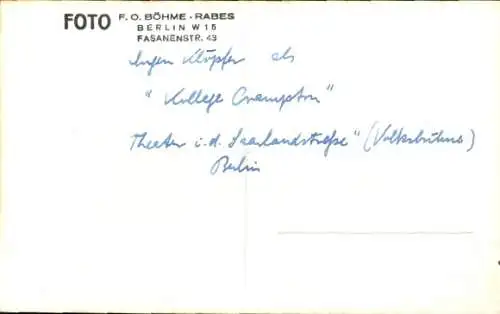 FOTO F. O. BÖHME - RABES
BERLIN W 15
FASANENSTR. 43
Eugen Klöpfer als
"Kollege Crampton"
Theater i. d. Saarlandstraße" (Volksbühne)
Berlin